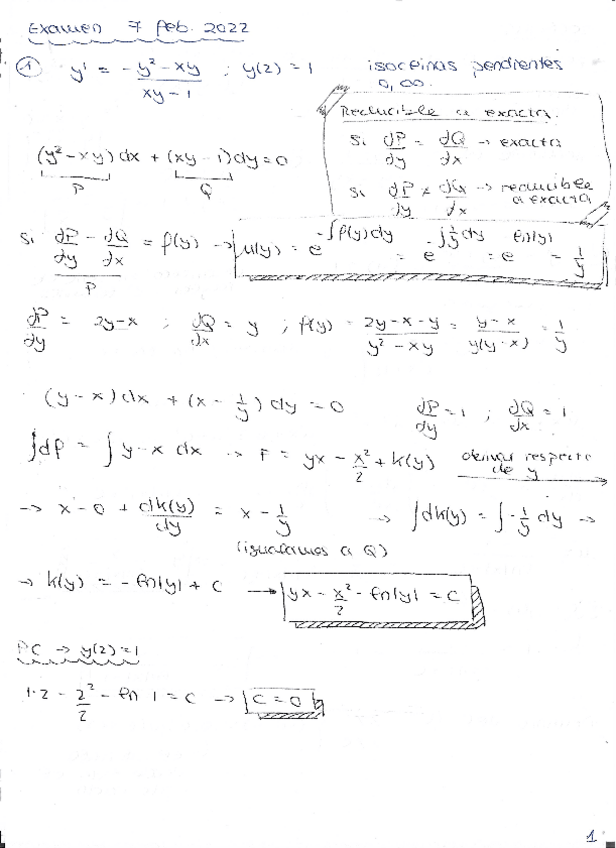 Examen 7 feb. 2022
① y' = -y² - xy / xy - 1 ; y(2) = 1 isoclinas pendientes 0, ∞.
Reducible a exacta.
Si dP/dy = dQ/dx → exacta
Si dP/dy ≠ dQ/dx → reducible a exacta
(y² - xy) dx + (xy - 1) dy = 0
P Q
Si dP/dy - dQ/dx / P = f(y) → μ(y) = e^(-∫f(y)dy) = e^(-∫1/y dy) = e^(ln|y|) = 1/y
dP/dy = 2y - x ; dQ/dx = y ; f(y) = 2y - x - y / y² - xy = y - x / y(y - x) = 1/y
(y - x) dx + (x - 1/y) dy = 0 dP/dy = 1 ; dQ/dx = 1
∫dP = ∫ y - x dx → F = yx - x²/2 + k(y) derivar respecto de y
→ x - 0 + dk(y)/dy = x - 1/y → ∫dk(y) = ∫ -1/y dy →
(igualamos a Q)
→ k(y) = -ln|y| + C → yx - x²/2 - ln|y| = C
PC → y(2) = 1
1·2 - 2²/2 - ln 1 = C → C = 0
1